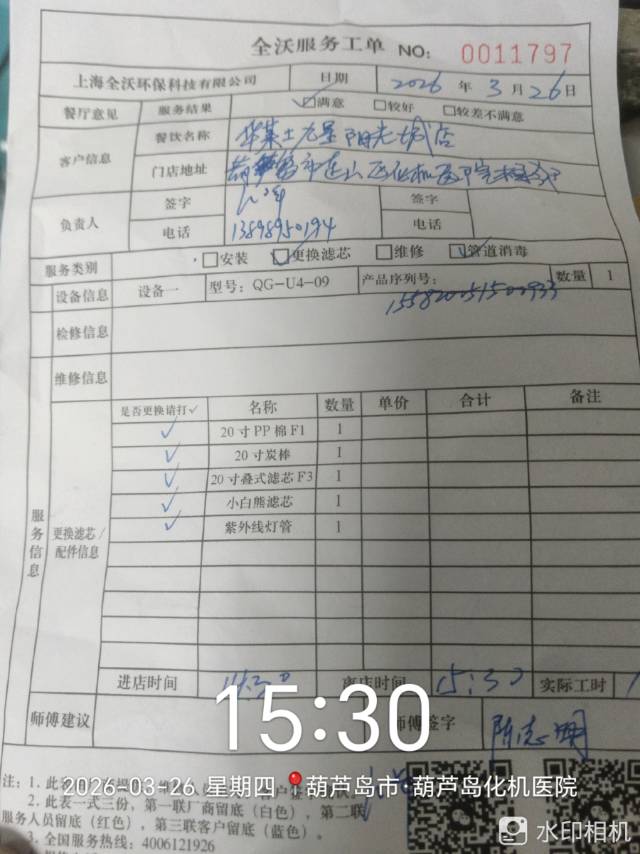 全沃服务工单 NO: 0011797
上海全沃环保科技有限公司 日期 2026 年 3 月 26 日
餐厅意见 服务结果 ☑满意 □较好 □较差不满意
客户信息 餐饮名称 阳光城店
门店地址
负责人 签字 签字
电话 13898950194 电话
服务类别 □安装 ☑更换滤芯 □维修 ☑管道消毒
设备信息 设备一 型号: QG-U4-09 产品序列号: 155820051500933 数量 1
检修信息
维修信息
服务信息 更换滤芯/配件信息 是否更换请打✓ 名称 数量 单价 合计 备注
✓ 20寸PP棉F1 1
✓ 20寸炭棒 1
✓ 20寸叠式滤芯F3 1
✓ 小白熊滤芯 1
✓ 紫外线灯管 1
进店时间 离店时间 15:30 实际工时 1
师傅建议 师傅签字 陈志明
15:30
2026-03-26 星期四 葫芦岛市·葫芦岛化机医院
注: 1. 此
2. 此表一式三份，第一联厂商留底（白色），第二联
服务人员留底（红色），第三联客户留底（蓝色）。
3. 全国服务热线: 4006121926
水印相机